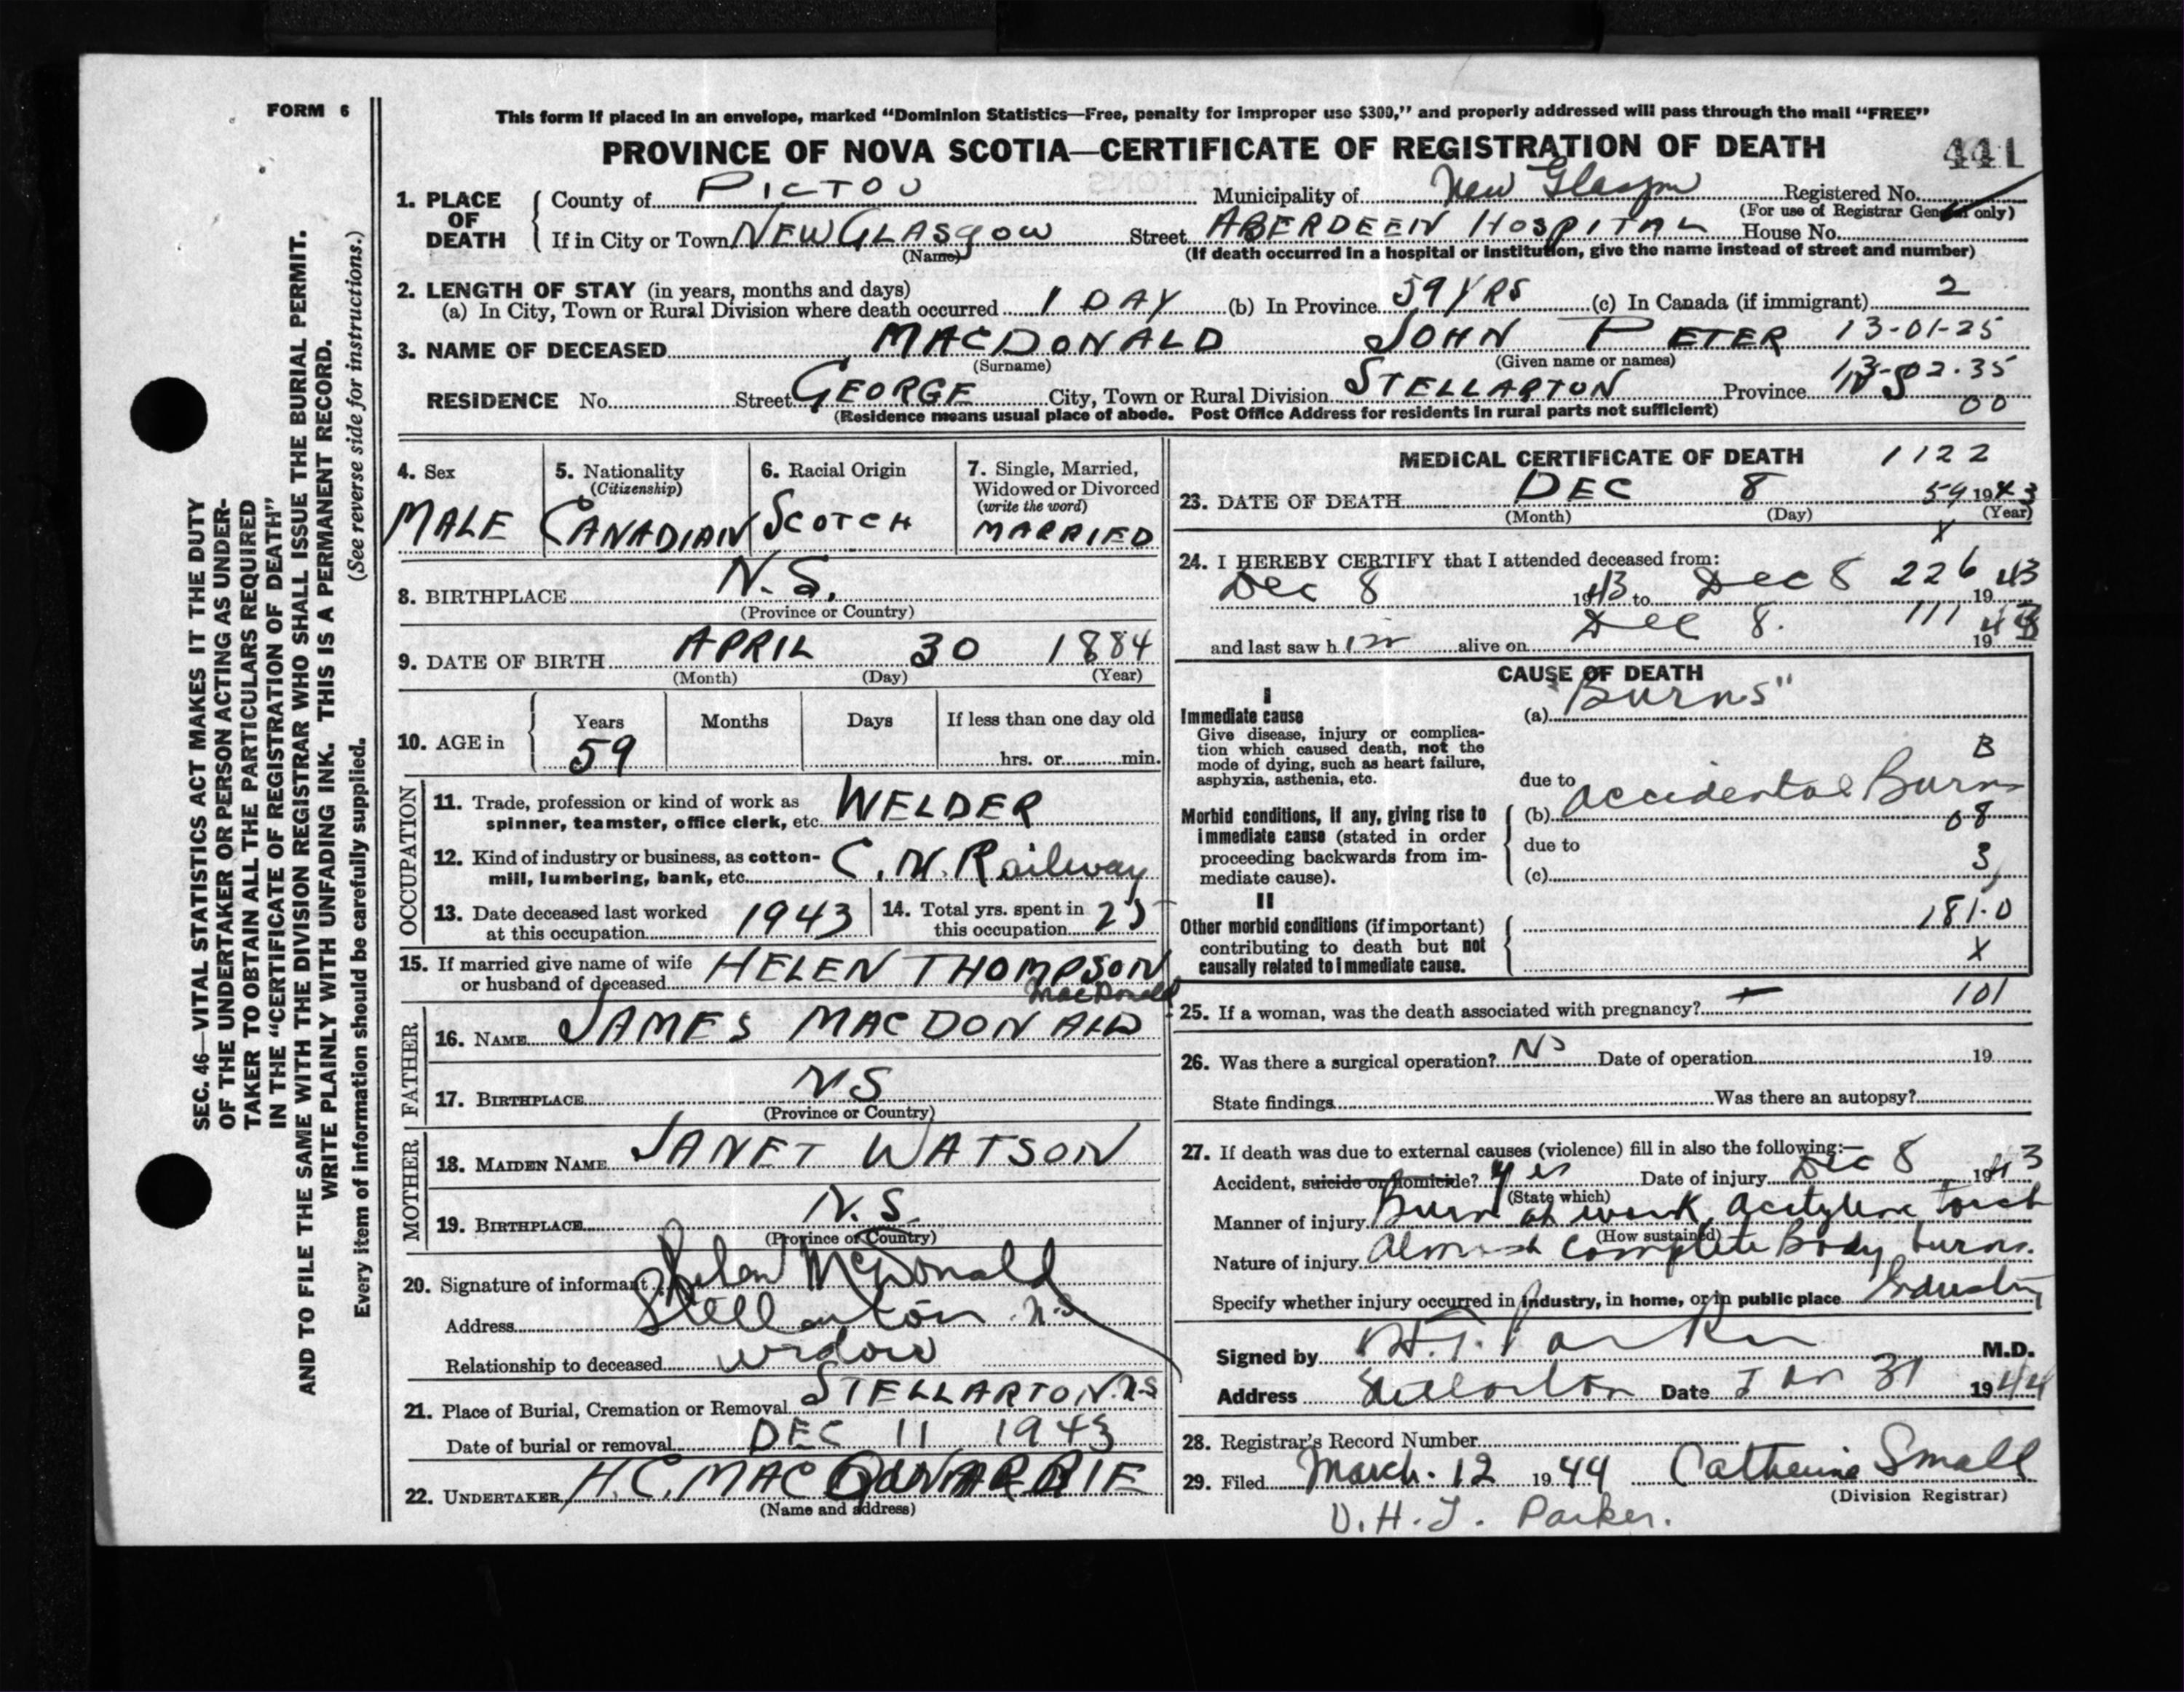 FORM 6
This form if placed in an envelope, marked "Dominion Statistics—Free, penalty for improper use $300," and properly addressed will pass through the mail "FREE"
PROVINCE OF NOVA SCOTIA—CERTIFICATE OF REGISTRATION OF DEATH
441
1. PLACE OF DEATH
County of PICTOU Municipality of New Glasgow Registered No.
(For use of Registrar General only)
If in City or Town NEW GLASGOW Street ABERDEEN HOSPITAL House No.
(Name) (If death occurred in a hospital or institution, give the name instead of street and number)
2. LENGTH OF STAY (in years, months and days)
(a) In City, Town or Rural Division where death occurred 1 DAY (b) In Province 59 YRS (c) In Canada (if immigrant) 2
3. NAME OF DECEASED MACDONALD JOHN PETER 13-01-25
(Surname) (Given name or names)
13-02-35
RESIDENCE No. Street GEORGE City, Town or Rural Division STELLARTON Province N S
(Residence means usual place of abode. Post Office Address for residents in rural parts not sufficient) 00
4. Sex
MALE
5. Nationality
(Citizenship)
CANADIAN
6. Racial Origin
SCOTCH
7. Single, Married,
Widowed or Divorced
(write the word)
MARRIED
8. BIRTHPLACE N.S.
(Province or Country)
9. DATE OF BIRTH APRIL 30 1884
(Month) (Day) (Year)
10. AGE in
Years Months Days If less than one day old
59 hrs. or min.
OCCUPATION
11. Trade, profession or kind of work as
spinner, teamster, office clerk, etc. WELDER
12. Kind of industry or business, as cotton-
mill, lumbering, bank, etc. C.N. Railway
13. Date deceased last worked
at this occupation 1943
14. Total yrs. spent in
this occupation 25
15. If married give name of wife
or husband of deceased HELEN THOMPSON
MacDonald
FATHER
16. NAME JAMES MACDONALD
17. BIRTHPLACE N S
(Province or Country)
MOTHER
18. MAIDEN NAME JANET WATSON
19. BIRTHPLACE N.S.
(Province or Country)
20. Signature of informant Helen McDonald
Address Stellarton N.S.
Relationship to deceased widow
21. Place of Burial, Cremation or Removal STELLARTON N.S
Date of burial or removal DEC 11 1943
22. UNDERTAKER H.C. MACQUARRIE
(Name and address)
MEDICAL CERTIFICATE OF DEATH 1122
23. DATE OF DEATH DEC 8 59 1943
(Month) (Day) (Year)
X
24. I HEREBY CERTIFY that I attended deceased from:
Dec 8 1943 to Dec 8 226 1943
111
and last saw h im alive on Dec 8. 1943
CAUSE OF DEATH
I
Immediate cause
Give disease, injury or complica-
tion which caused death, not the
mode of dying, such as heart failure,
asphyxia, asthenia, etc.
(a) "Burns"
B
due to
Morbid conditions, if any, giving rise to
immediate cause (stated in order
proceeding backwards from im-
mediate cause).
(b) accidental Burns
08
due to
3
(c)
II
Other morbid conditions (if important)
contributing to death but not
causally related to immediate cause.
181.0
X
25. If a woman, was the death associated with pregnancy? 101
26. Was there a surgical operation? No Date of operation 19
State findings Was there an autopsy?
27. If death was due to external causes (violence) fill in also the following:—
Accident, suicide or homicide? yes Date of injury Dec 8 1943
(State which)
Manner of injury Burn at work, acetylene torch
(How sustained)
Nature of injury Almost complete Body burns.
Specify whether injury occurred in industry, in home, or in public place Industry
Signed by H.T. Parker M.D.
Address Stellarton Date Jan 31 1944
28. Registrar's Record Number
29. Filed March. 12 1944 Catherine Small
(Division Registrar)
Parker.
SEC. 46—VITAL STATISTICS ACT MAKES IT THE DUTY
OF THE UNDERTAKER OR PERSON ACTING AS UNDER-
TAKER TO OBTAIN ALL THE PARTICULARS REQUIRED
IN THE "CERTIFICATE OF REGISTRATION OF DEATH"
AND TO FILE THE SAME WITH THE DIVISION REGISTRAR WHO SHALL ISSUE THE BURIAL PERMIT.
WRITE PLAINLY WITH UNFADING INK. THIS IS A PERMANENT RECORD.
Every item of information should be carefully supplied. (See reverse side for instructions.)